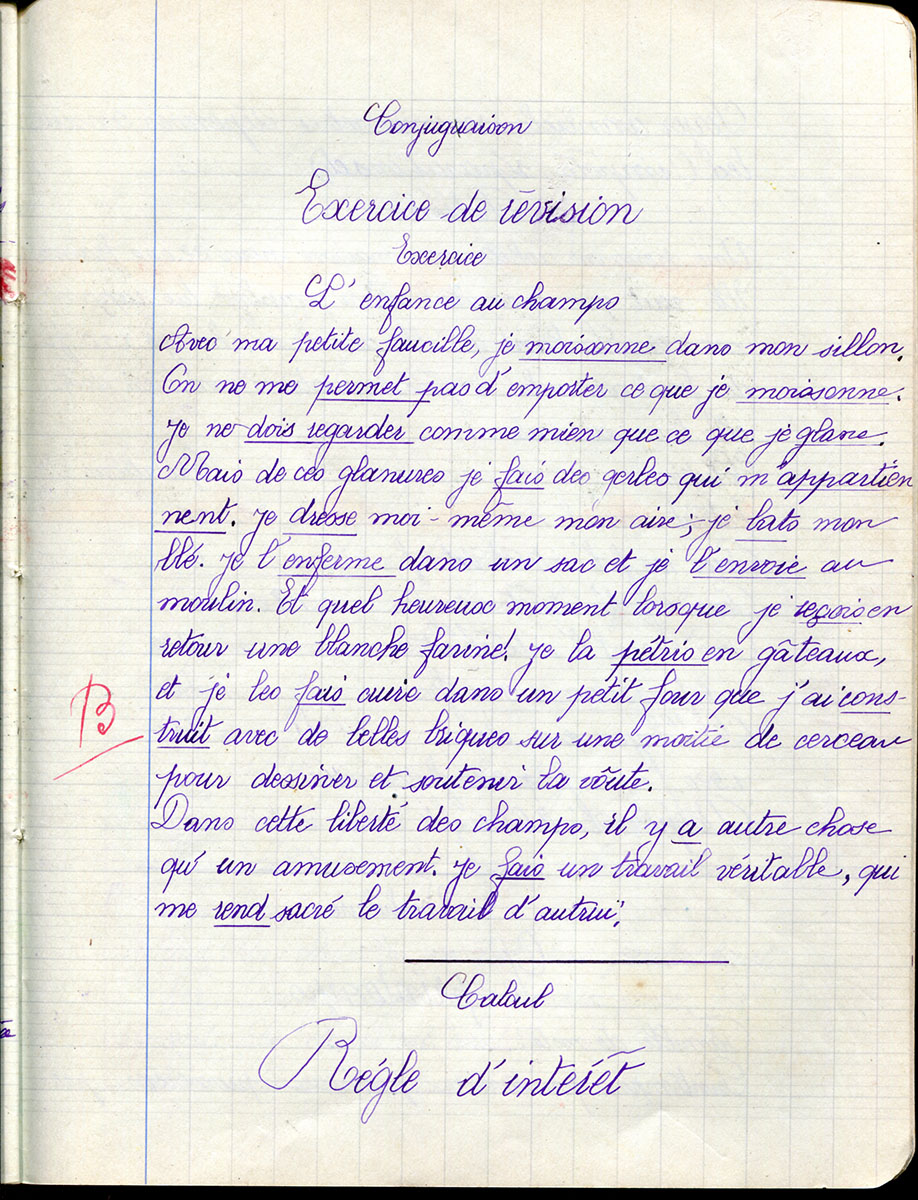 Conjuguaison
Exercice de révision
Exercice
L'enfance au champs
Avec ma petite faucille, je moissonne dans mon sillon.
On ne me permet pas d'emporter ce que je moissonne.
Je ne dois regarder comme mien que ce que je glane.
Mais de ces glanures je fais des gerbes qui m'appartien
nent. Je dresse moi-même mon aire; je bats mon
blé. Je l'enferme dans un sac et je l'envoie au
moulin. Et quel heureux moment lorsque je reçois en
retour une blanche farine! Je la pétris en gâteaux,
et je les fais cuire dans un petit four que j'ai cons-
B
truit avec de belles briques sur une moitié de cerceau
pour dessiner et soutenir la voûte.
Dans cette liberté des champs, il y a autre chose
qu'un amusement. Je fais un travail véritable, qui
me rend sacré le travail d'autrui.
Calcul
Règle d'intérêt